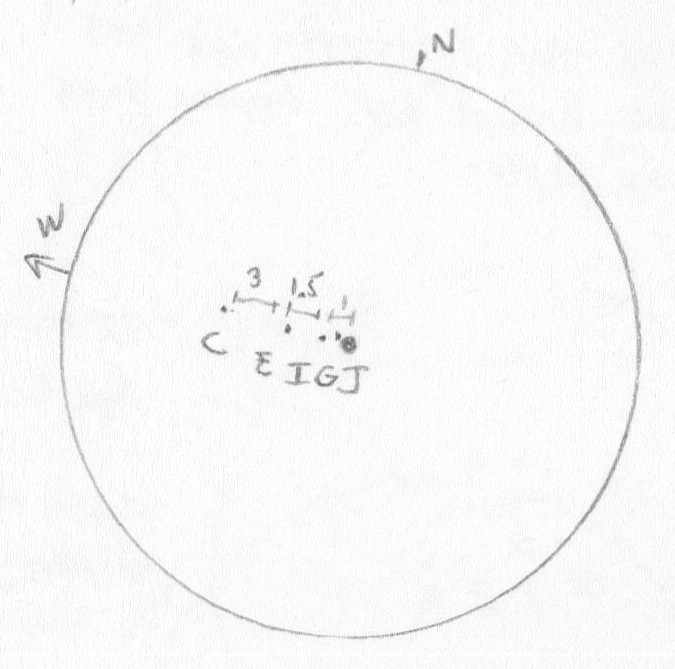 N
W
3 1.5 1
C E I G J